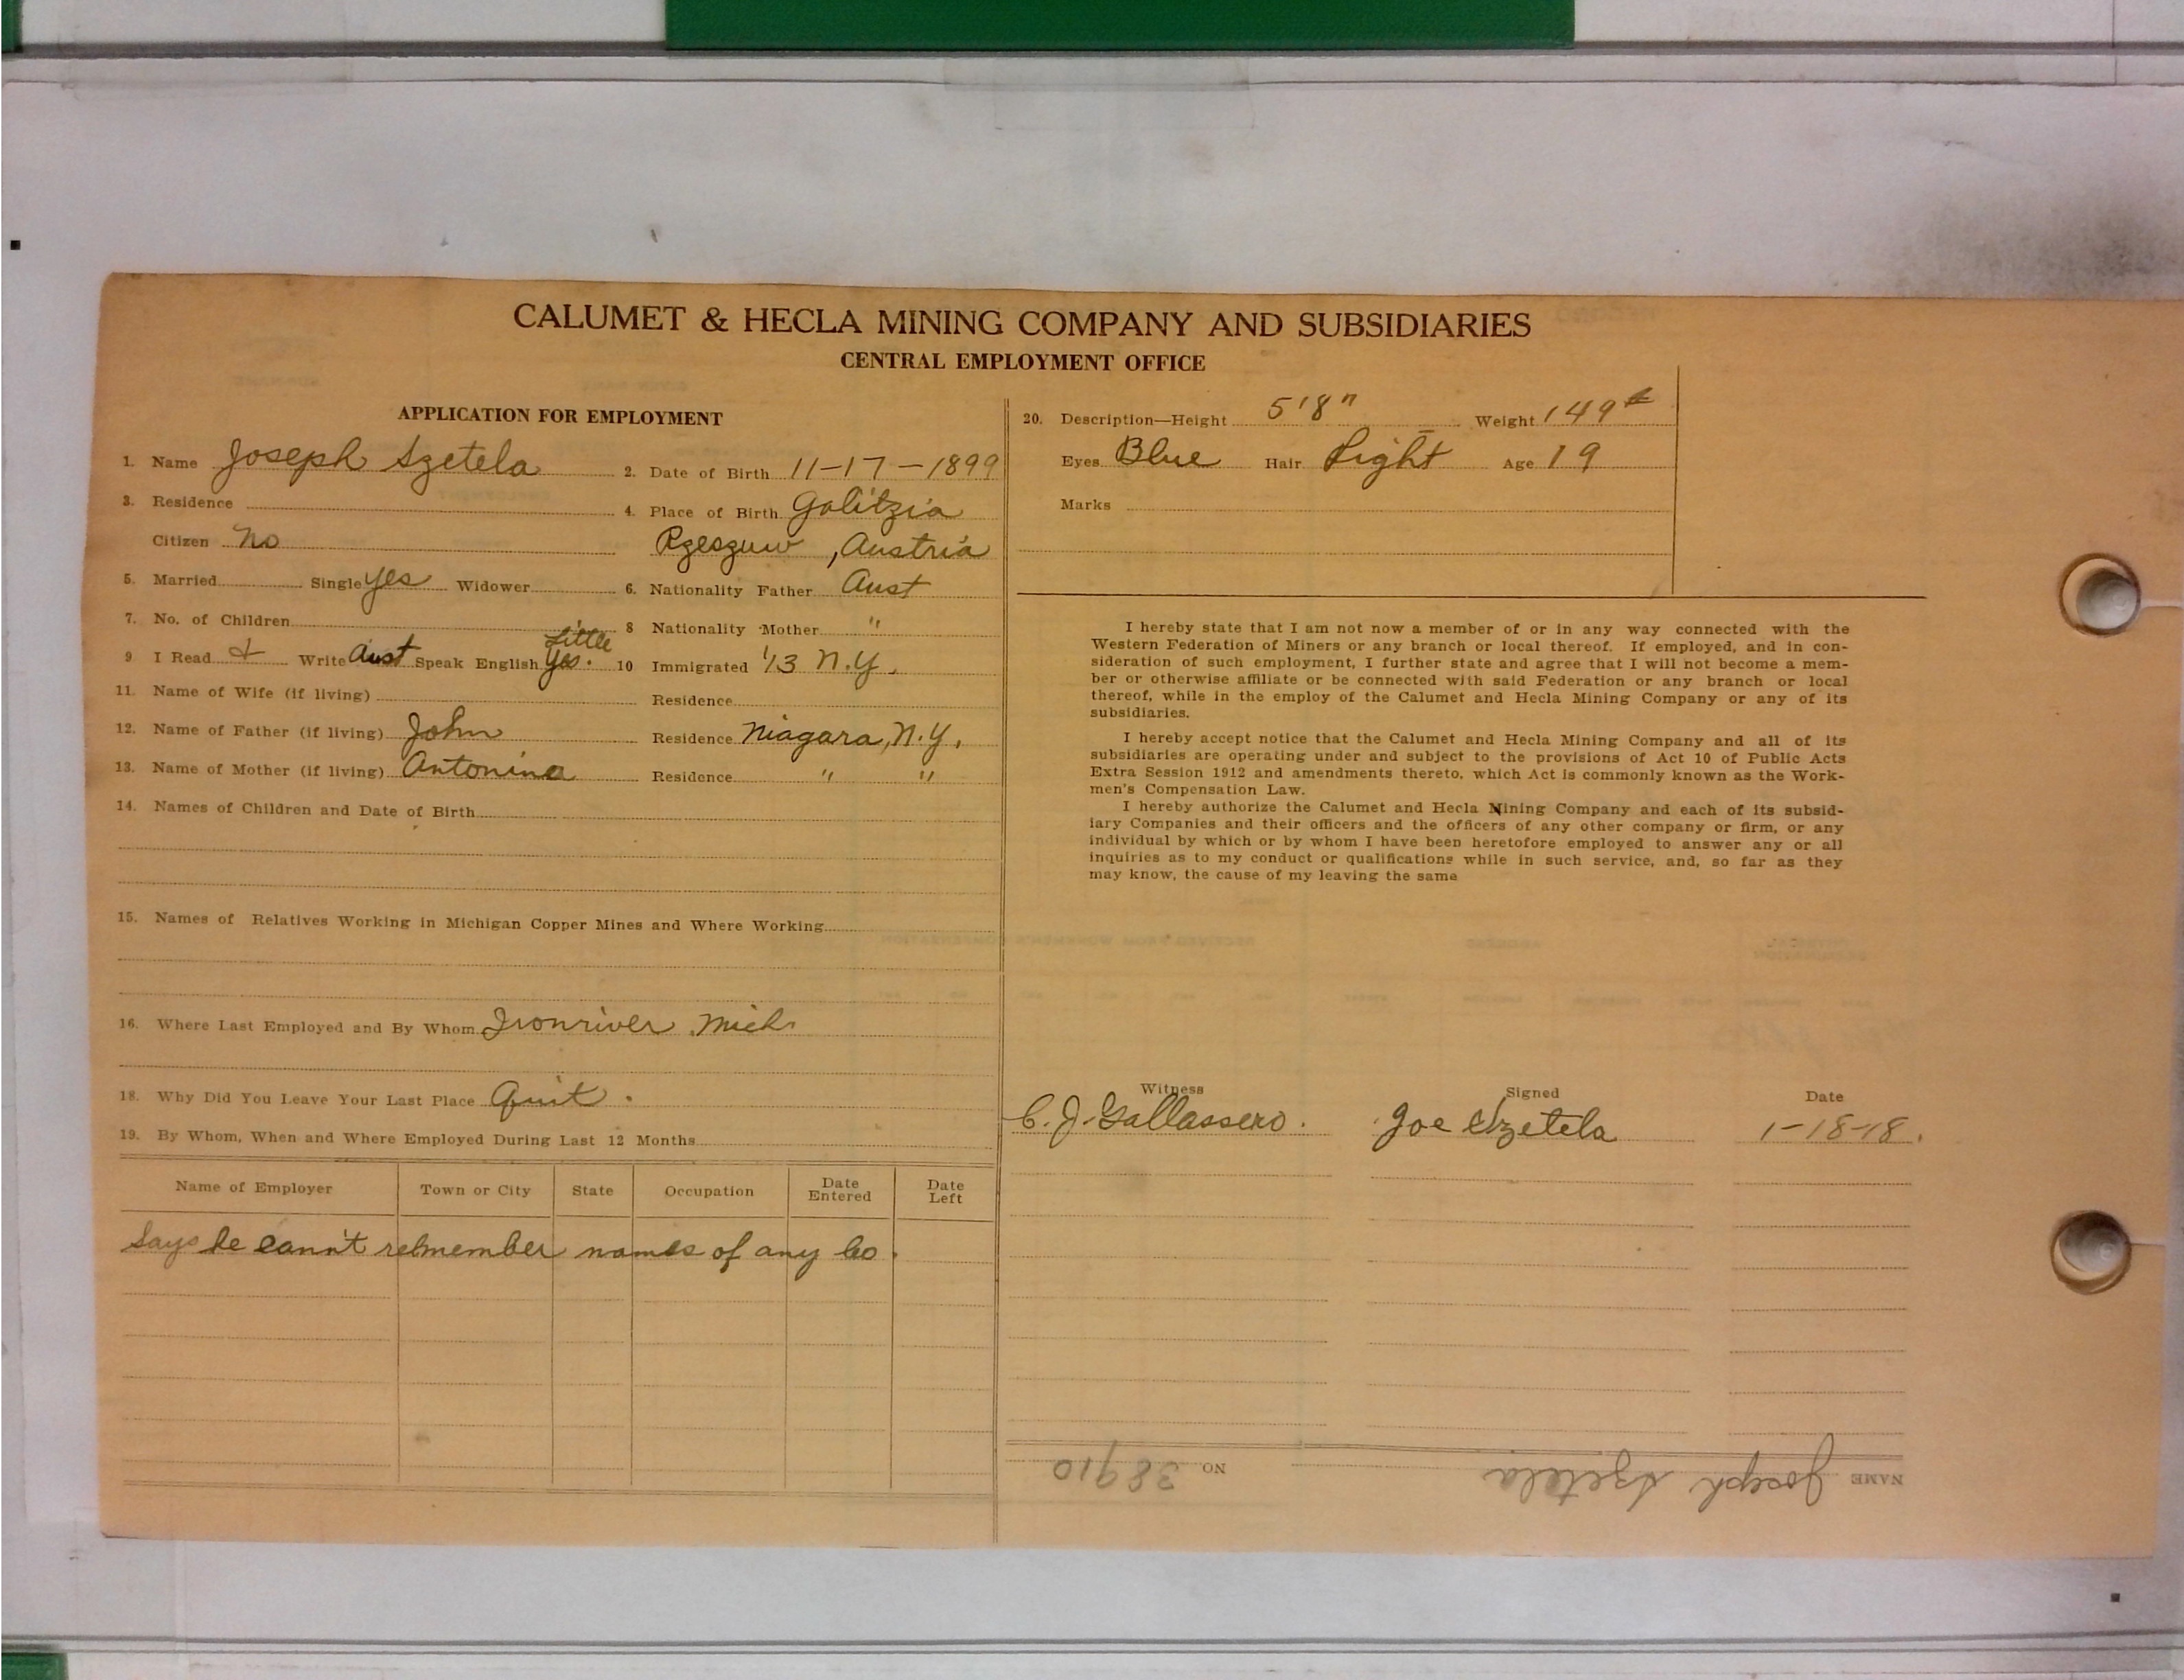 CALUMET & HECLA MINING COMPANY AND SUBSIDIARIES
CENTRAL EMPLOYMENT OFFICE
APPLICATION FOR EMPLOYMENT
1. Name Joseph Szetela 2. Date of Birth 11-17-1899
3. Residence 4. Place of Birth Galitzia
Citizen No Rzeszuw, Austria
5. Married Single yes Widower 6. Nationality Father Aust
7. No. of Children 8 Nationality Mother "
Little
9 I Read & Write Aust Speak English Yes. 10 Immigrated '13 N.Y.
11. Name of Wife (if living) Residence
12. Name of Father (if living) John Residence Niagara, N.Y.
13. Name of Mother (if living) Antonina Residence " "
14. Names of Children and Date of Birth
15. Names of Relatives Working in Michigan Copper Mines and Where Working
16. Where Last Employed and By Whom Ironriver, Mich
18. Why Did You Leave Your Last Place Quit.
19. By Whom, When and Where Employed During Last 12 Months
Name of Employer Town or City State Occupation Date Entered Date Left
Says he cann't rebmember names of any Co.
20. Description—Height 5'8" Weight 149#
Eyes Blue Hair Light Age 19
Marks
I hereby state that I am not now a member of or in any way connected with the
Western Federation of Miners or any branch or local thereof. If employed, and in con-
sideration of such employment, I further state and agree that I will not become a mem-
ber or otherwise affiliate or be connected with said Federation or any branch or local
thereof, while in the employ of the Calumet and Hecla Mining Company or any of its
subsidiaries.
I hereby accept notice that the Calumet and Hecla Mining Company and all of its
subsidiaries are operating under and subject to the provisions of Act 10 of Public Acts
Extra Session 1912 and amendments thereto, which Act is commonly known as the Work-
men's Compensation Law.
I hereby authorize the Calumet and Hecla Mining Company and each of its subsid-
iary Companies and their officers and the officers of any other company or firm, or any
individual by which or by whom I have been heretofore employed to answer any or all
inquiries as to my conduct or qualifications while in such service, and, so far as they
may know, the cause of my leaving the same
Witness Signed Date
C. J. Gallassero. Joe Szetela 1-18-18.
NAME Joseph Szetela NO 38910